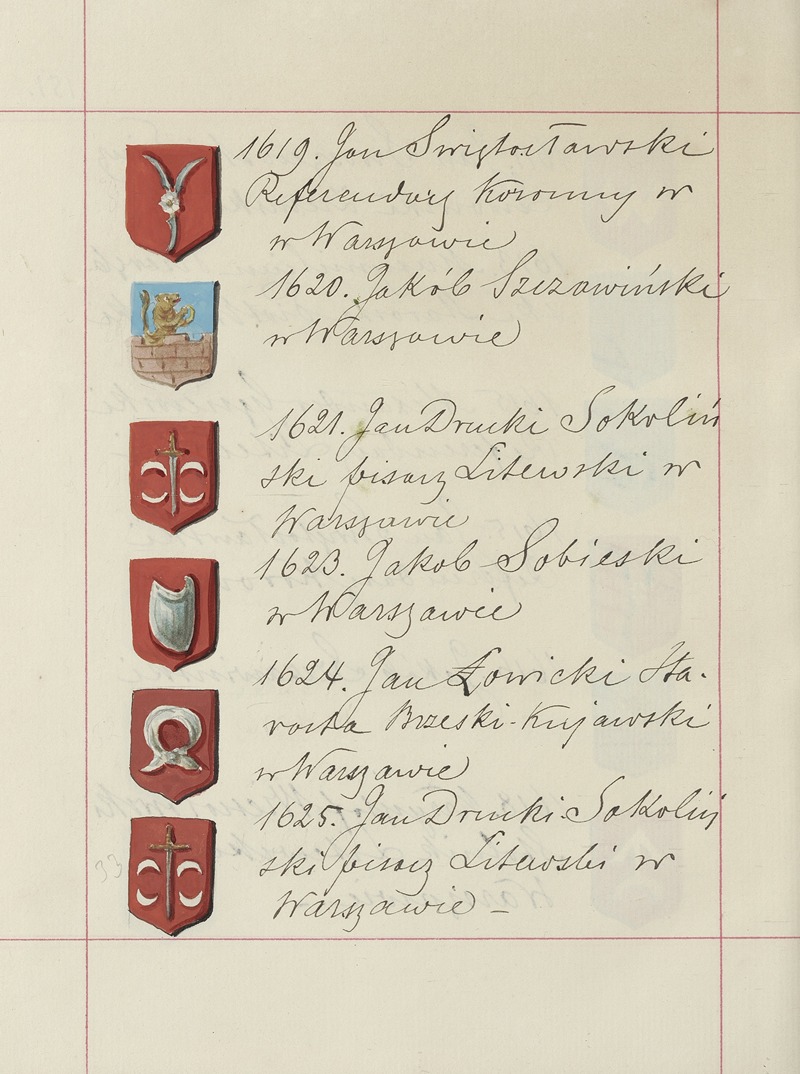 1619. Jan Swiętosławski
Referendarz Koronny w
w Warszawie
1620. Jakób Szczawiński
w Warszawie
1621. Jan Drucki Sokoliń
ski pisarz Litewski w
Warszawie
1623. Jakob Sobieski
w Warszawie
1624. Jan Łowicki Sta-
rosta Brzeski-Kujawski
w Warszawie
1625. Jan Drucki-Sokoliń
ski pisarz Litewski w
Warszawie –
33